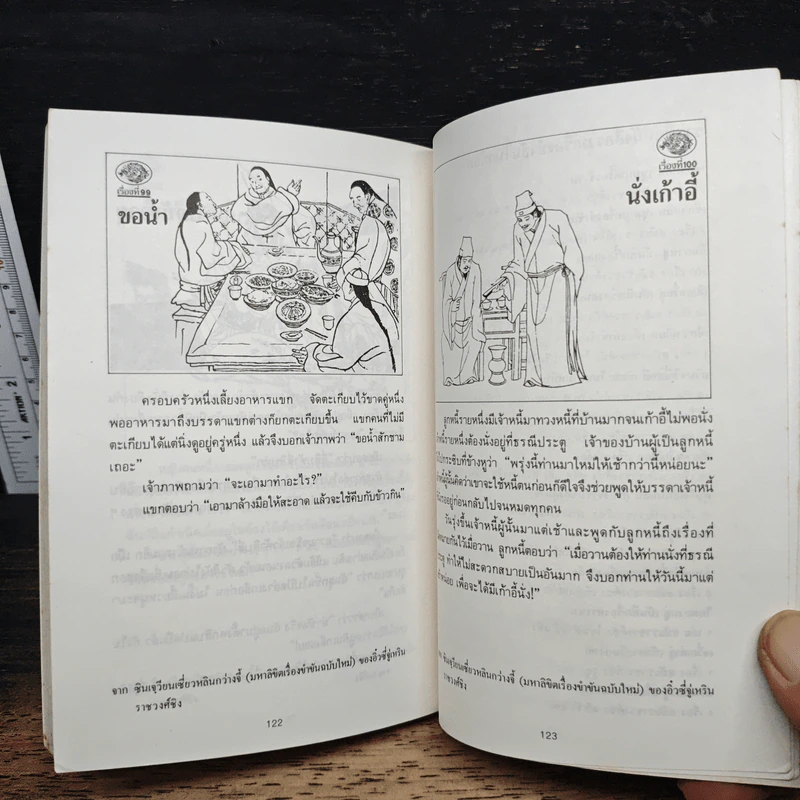 เรื่องที่ 99
ขอน้ำ
ครอบครัวหนึ่งเลี้ยงอาหารแขก จัดตะเกียบไว้ขาดคู่หนึ่ง
พออาหารมาถึงบรรดาแขกต่างก็ยกตะเกียบขึ้น แขกคนที่ไม่มี
ตะเกียบได้แต่นิ่งดูอยู่ครู่หนึ่ง แล้วจึงบอกเจ้าภาพว่า “ขอน้ำสักชาม
เถอะ”
เจ้าภาพถามว่า “จะเอามาทำอะไร?”
แขกตอบว่า “เอามาล้างมือให้สะอาด แล้วจะใช้คีบกับข้าวกิน”
จาก ซินเจวียนเซี่ยวหลินกว่างจี้ (มหาลิขิตเรื่องขำขันฉบับใหม่) ของอิ๋วซี่จู่เหริน
ราชวงศ์ชิง
122
เรื่องที่ 100
นั่งเก้าอี้
ลูกหนี้รายหนึ่งมีเจ้าหนี้มาทวงหนี้ที่บ้านมากจนเก้าอี้ไม่พอนั่ง
รายหนึ่งต้องนั่งอยู่ที่ธรณีประตู เจ้าของบ้านผู้เป็นลูกหนี้
ไปกระซิบที่ข้างหูว่า “พรุ่งนี้ท่านมาใหม่ให้เช้ากว่านี้หน่อยนะ”
ผู้นั้นคิดว่าเขาจะใช้หนี้ตนก่อนก็ดีใจจึงช่วยพูดให้บรรดาเจ้าหนี้
อยู่ก่อนกลับไปจนหมดทุกคน
วันรุ่งขึ้นเจ้าหนี้ผู้นั้นมาแต่เช้าและพูดกับลูกหนี้ถึงเรื่องที่
กันไว้เมื่อวาน ลูกหนี้ตอบว่า “เมื่อวานต้องให้ท่านนั่งที่ธรณี
ทำให้ไม่สะดวกสบายเป็นอันมาก จึงบอกท่านให้วันนี้มาแต่
หน่อย เพื่อจะได้มีเก้าอี้นั่ง!”
ซินเจวียนเซี่ยวหลินกว่างจี้ (มหาลิขิตเรื่องขำขันฉบับใหม่) ของอิ๋วซี่จู่เหริน
ราชวงศ์ชิง
123